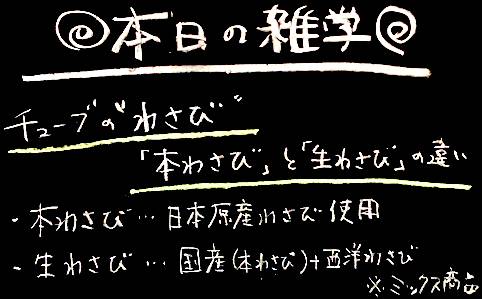 本日の雑学
チューブの"わさび"
「本わさび」と「生わさび」の違い
・本わさび…日本原産わさび使用
・生わさび…国産(本わさび)+西洋わさび
※ミックス商品